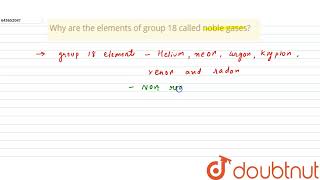 643652047
Why are the elements of group 18 called noble gases?
→ group 18 elements - Helium, neon, argon, krypton,
xenon and radon
- Non rea
doubtnut